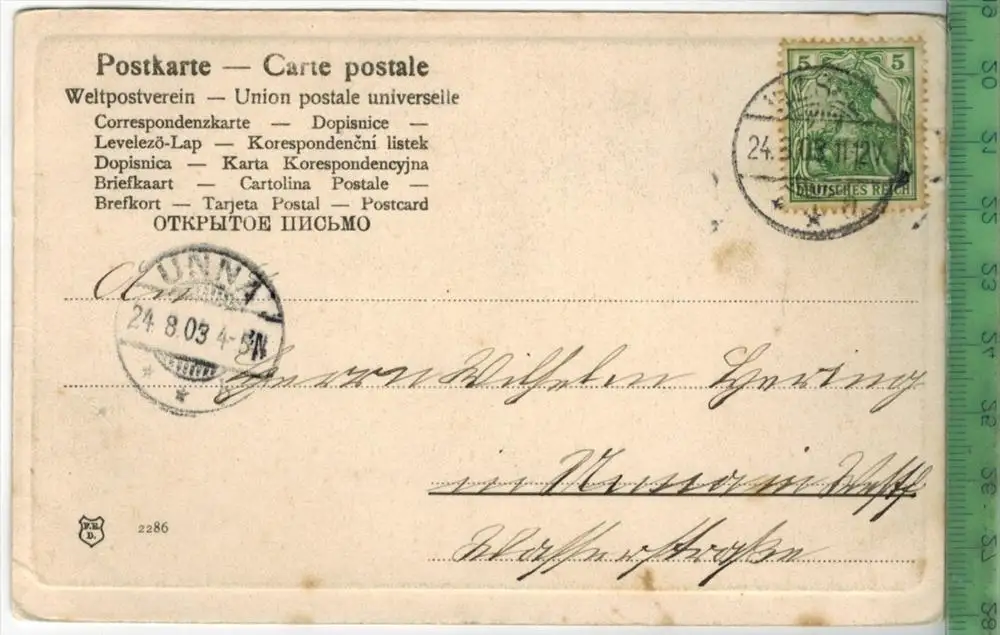 Postkarte — Carte postale
Weltpostverein — Union postale universelle
Correspondenzkarte — Dopisnice —
Levelező-Lap — Korespondenční listek
Dopisnica — Karta Korespondencyjna
Briefkaart — Cartolina Postale —
Brefkort — Tarjeta Postal — Postcard
ОТКРЫТОЕ ПИСЬМО
5 5
DEUTSCHES REICH
24. 11-12V
UNNA
24.8.03 4-5N
An
Herrn Wilhelm Hering
in Unna in Westf
Wasserstraße
F.E.
D.
2286
19 20 21 22 23 24 25 26 27 28